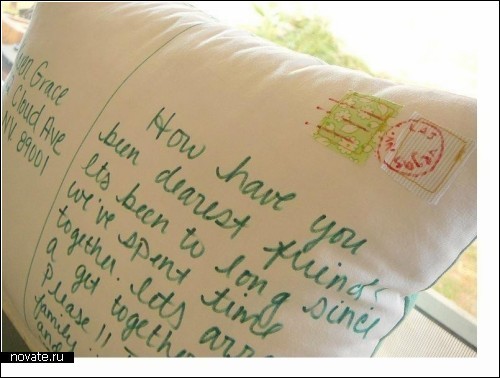 Grace
Cloud Ave
NV 89001
How have you
been dearest friends
Its been to long since
we've spent time
together. lets
a get together
Please!!
family
and
LAS VEGAS
NV.
novate.ru